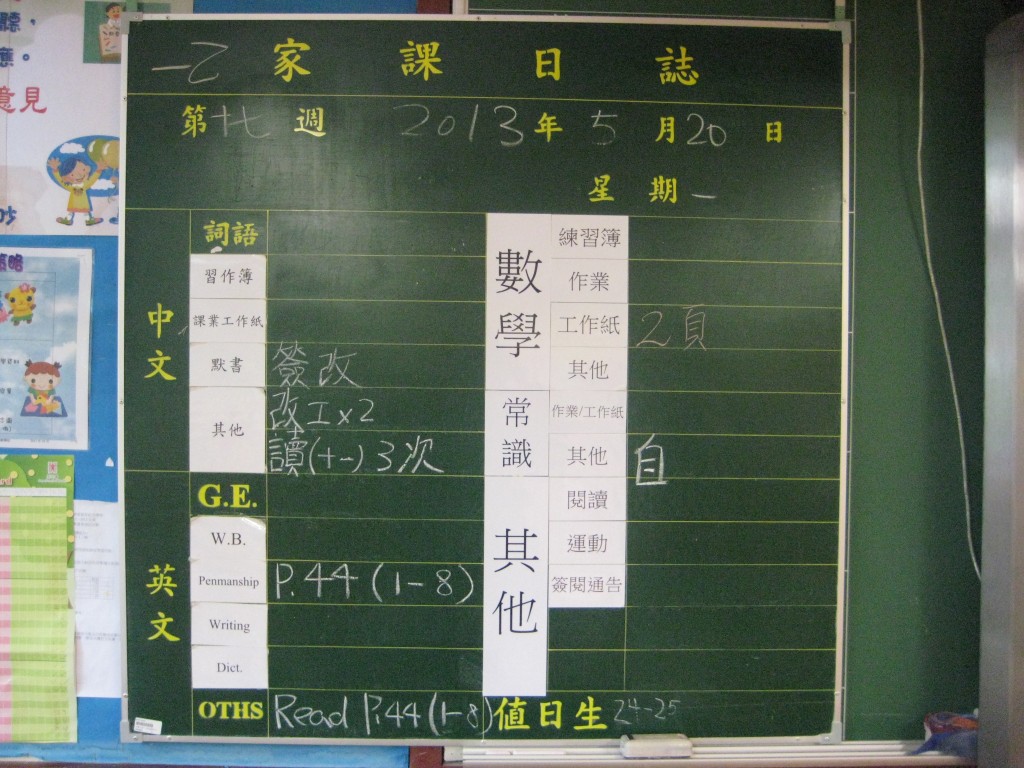 聽
應。
意見
妙
策略
一乙 家課日誌
第十七週 2013年5月20日
星期一
中文
詞語
習作簿
課業工作紙
默書 簽改
其他 改工x2
讀(十一)3次
英文
G.E.
W.B.
Penmanship P.44 (1-8)
Writing
Dict.
OTHS Read P.44 (1-8)
數學
練習簿
作業
工作紙 2頁
其他
常識
作業/工作紙
其他 自
其他
閱讀
運動
簽閱通告
值日生 24-25